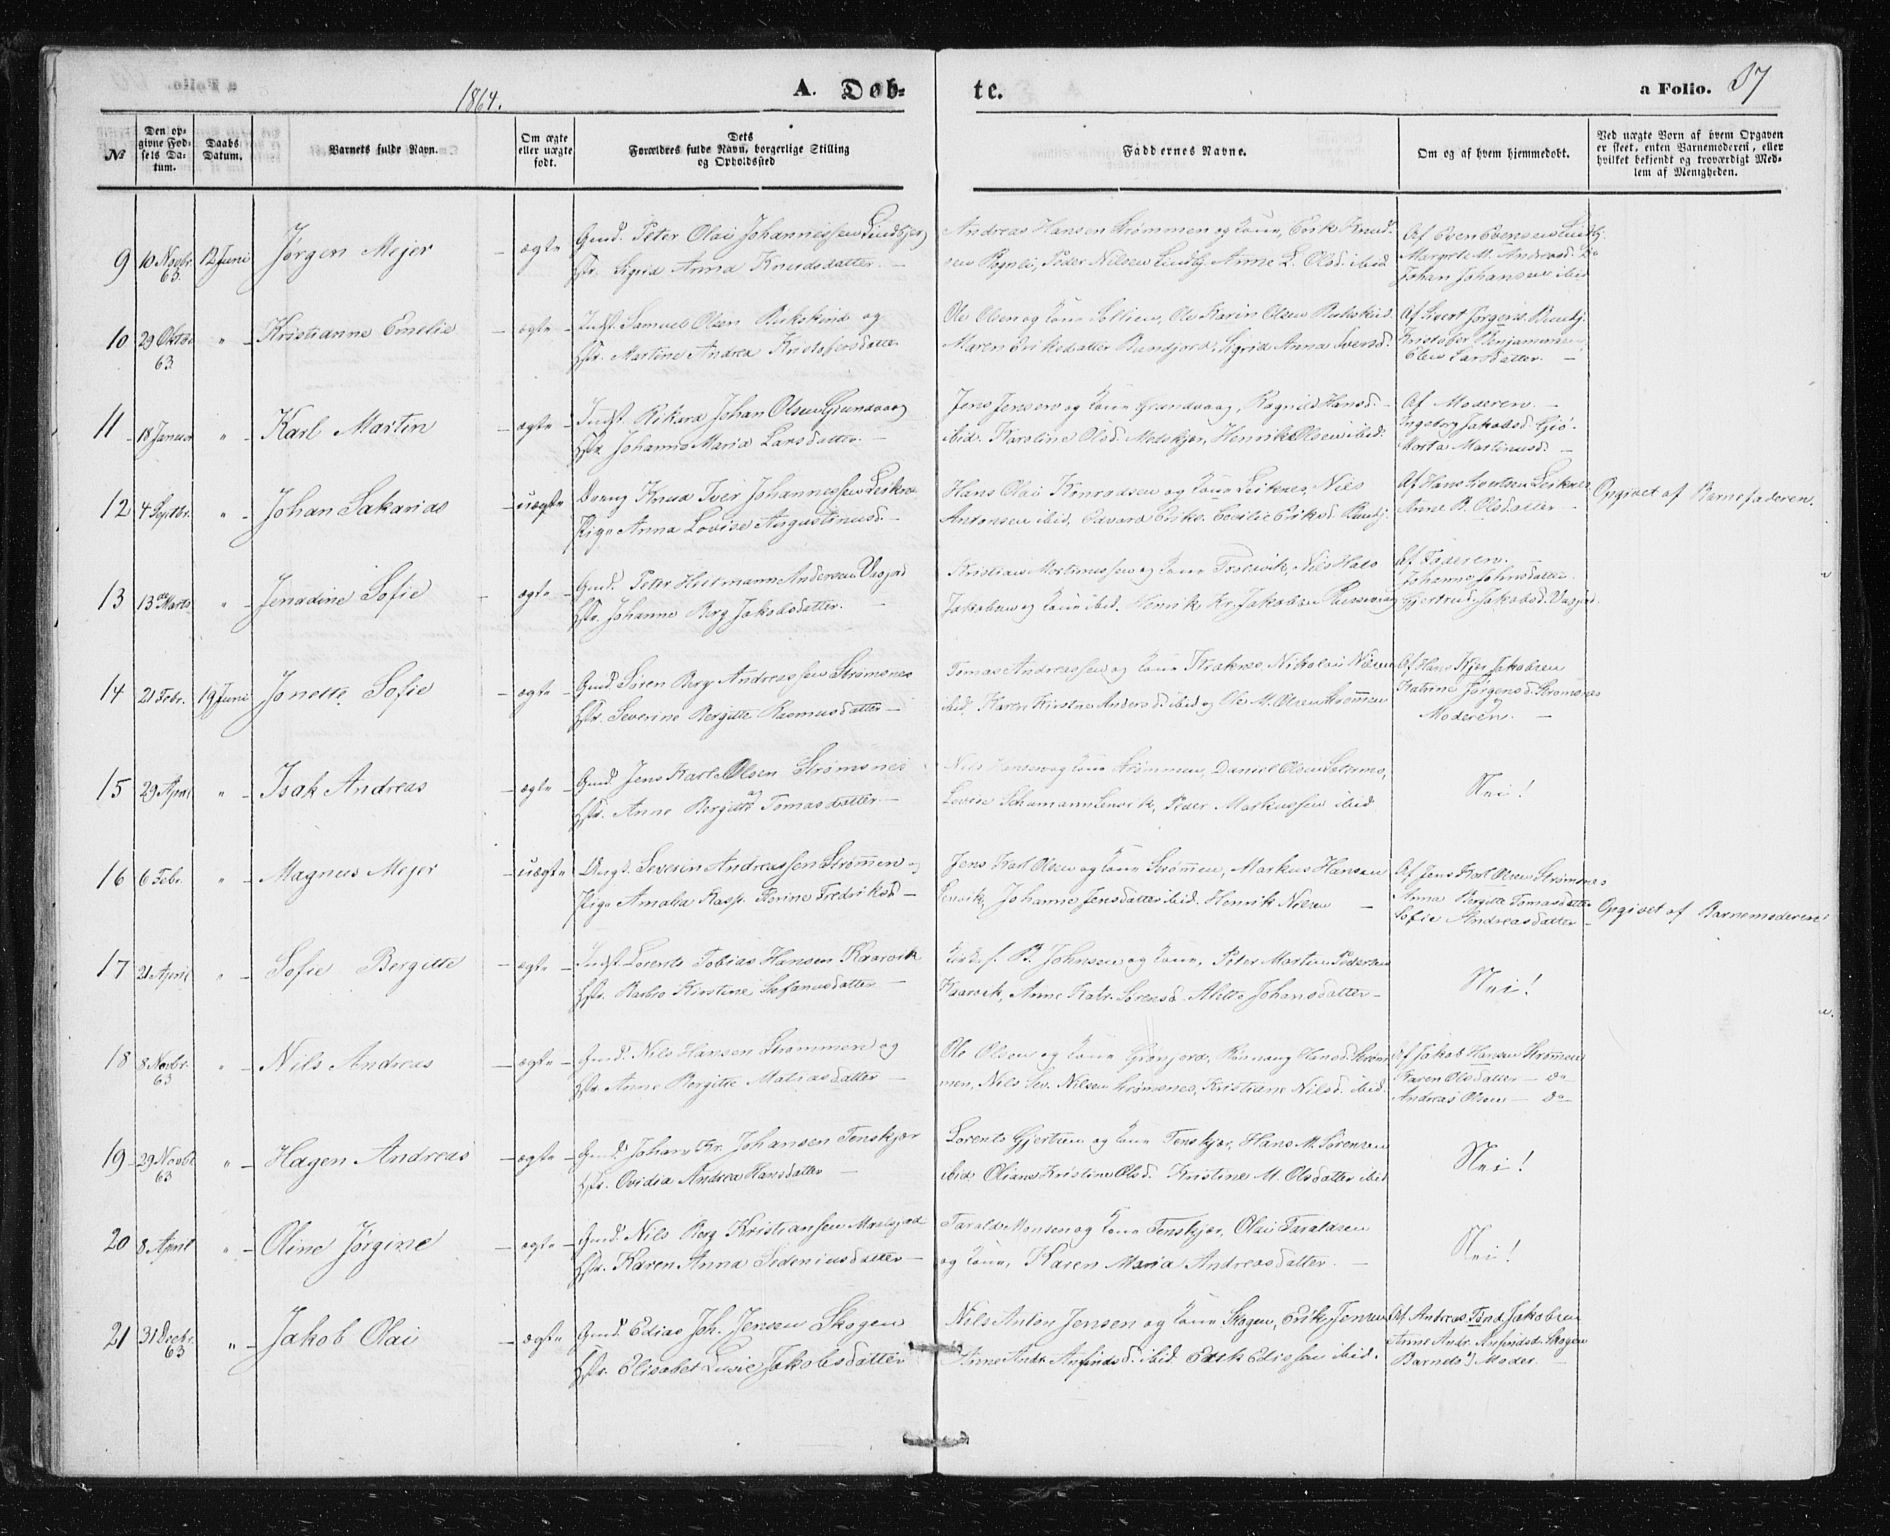 1864.
A. Døb-
te.
a Folio. 37
No
Den op-
givne Fød-
sels Da-
tum.
Daabs
Datum.
Barnets fulde Navn.
Om ægte
eller uægte
født.
Dets
Forældres fulde Navn, borgerlige Stilling
og Opholdssted
Faddernes Navne.
Om og af hvem hjemmedøbt.
Ved uægte Børn af hvem Opgaven
er skeet, enten Barnemoderen, eller
hvilket bekjendt og troværdigt Med-
lem af Menigheden.
9 10 Novbr. 63 12 Juni Jørgen Mejer – ægte –
Gmd. Peter Olai Johannessen Lindbjerg
Hstr. Sigrid Anna Knudsdatter. –
Andreas Hansen Strømmen og Kone, Erik Knud-
sen, Peder Nilsen Lindbj. Anne L. Olsd. ibid
Af Even Evensen Lindbj.
Margrete M. Andreasd. Do
Johan Johansen ibid
10 29 Oktbr 63 " – Kristianne Emelie – ægte –
Indst. Samuel Olsen Bukskind og
Hstr. Martine Andrea Kristofersdatter
Ole Olsen og Kone Sollien, Ole Karin Olsen Bukskind
Maren Eriksdatter Bundjord, Sigrid Anna Svensd.
Af Sivert Jørgens. Bundj.
Kristofer Benjaminsen
Elen Larsdatter. –
11 – 18 Januar " – Karl Martin – ægte –
Indst. Rikard Johan Olsen Grundvaag
Hstr. Johanna Maria Larsdatter. –
Jens Jensen og Kone Grundvaag, Ragnild Hansd. –
ibid. Karoline Olsd. Medskjer, Henrik Olsen ibid.
Af Moderen. –
Ingeborg Jakobsd.
Marta Martinusd. –
12 4 Septbr. " – Johan Sakarias – uægte
Knud Iver Johannessen Leiknes,
Pige Anna Lovise Augustinusd. –
Hans Olai Konradsen og Kone Leiknes, Nils
Antonsen ibid. Edvard Eriks. Cecilie Eriksd. Bundj.
Af Hans Leiknes
Anne B. Olsdatter –
Opgivet af Barnefaderen.
13 13de Marts " – Jenodine Sofie – ægte –
Gmd. Peter Hitmann Andersen Vasjord
Hstr. Johanne Berg Jakobsdatter. –
Kristian Mortensen og Kone, Nils Hals
Jakobsen og Kone ibid. Henrik Kr. Jakobsen
Af Faderen. –
Johanne Johnsdatter.
Gjertrud Jakobsd. Vasjord.
14 21 Febr. 19 Juni Jonette Sofie – ægte –
Gmd. Søren Berg Andreassen Strømsnes
Hstr. Severine Bergitte Rasmusdatter –
Tomas Andreassen og Kone Kraknes, Nikolai Nilsen
ibid. Karen Kirstne Andersd. ibid og Ole M. Olsen Strømmen
Af Hans Kjer Jakobsen
Katrine Jørgensd. Strømsnes
og
Moderen. –
15 29 April " – Isak Andreas – ægte –
Gmd. Jens Karl Olsen Strømsnes
Hstr. Anne Bergitte Tomasdatter –
Nils Hansen og Kone Strømmen, Daniel Olsen
Lenvik, Peder Markussen ibid.
Nei!
16 6 Febr. " – Magnus Mejer – uægte –
Ungk. Severin Andreassen Strømmen og
Pige Amalia Rasp. Florine Fredriksd –
Jens Karl Olsen og Kone Strømmen, Markus Hansen
Lenvik, Johanne Jensdatter ibid. Henrik Nilsen –
Af Jens Karl Olsen Strømsnes
Anna Bergitte Tomasdatter
Sofie Andreasdatter –
Opgivet af Barnemoderen!
17 21 April " – Sofie Bergitte – ægte –
Indst. Lorents Tobias Hansen Kaarvik
Hstr. Barbro Kirstine Stefanusdatter –
B. Johnsen og Kone, Peter Martin Pedersen
Kaarvik, Anne Katr. Sørensd. Alette Johansdatter –
Nei!
18 8 Novbr. 63 " – Nils Andreas – ægte –
Gmd. Nils Hansen Strømmen og
Hstr. Anne Bergitte Matiasdatter –
Ole Olsen og Kone Grønjord, Hansd. Strøm-
men, Nils Sev. Nilsen Strømsnes, Kristiane Nilsd. ibid.
Af Jakob Hansen Strømmen
Karen Olsdatter – do
Andreas Olsen – do
19 – 29 Novbr 63 " – Hagen Andreas – ægte –
Gmd. Johan Kr. Johansen Tenskjær
Hstr. Ovidia Andrea Hansdatter –
Lorents Gjertsen og Kone Tenskjær, Hans M. Sørensen
ibid. Oliane Kristine Olsd. Kristine M. Olsdatter ibid
Nei!
20 8 April " – Oline Jørgine – ægte –
Gmd. Nils Berg Kristiansen
Hstr. Karen Anna Sedeniusdatter –
Tarald Monsen og Kone Tenskjær, Olai Taraldsen
og Kone, Karen Maria Andreasdatter. –
Nei!
21 31 Decbr. 63 " – Jakob Olai – ægte –
Gmd. Edias Joh. Jensen Skogen
Hstr. Elisabet Lucie Jakobsdatter
Nils Anton Jensen og Kone Skogen, Erik Jensen
Anne Andr. Anfindsd. ibid. Erik Ediassen ibid.
Af Andreas Jakobsen
Anne Andr. Anfindsd. Skogen
Barnets Moder. –